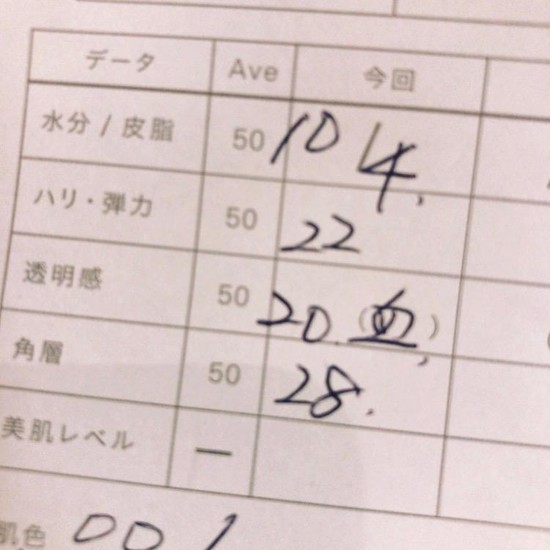 データ Ave 今回
水分 / 皮脂 50 10 / 4.
ハリ・弾力 50 22
透明感 50 20. (血)
角層 50 28.
美肌レベル —
肌色 001